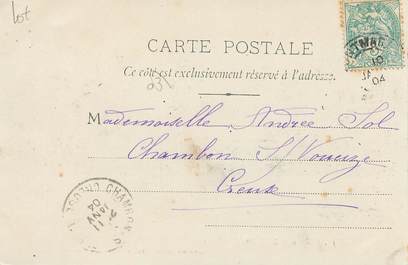 Lot
CARTE POSTALE
Ce côté est exclusivement réservé à l'adresse.
Mademoiselle Andrée Sol
Chambon S/ Voueize
Creuse
10
04
CHAMBON
CREUSE
11
JANV
04